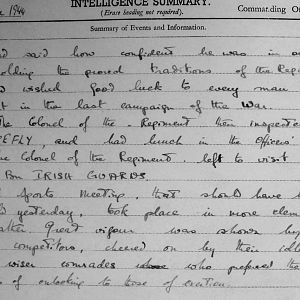 1944
INTELLIGENCE SUMMARY.
(Erase heading not required).
Commanding Of
Summary of Events and Information.
said how confident he was in
olding the proud traditions of the Reg
wished good luck to every man
in the last campaign of the War.
The Colonel of the Regiment then inspecte
EFLY, and had lunch in the Officers'
Colonel of the Regiment left to visit
Bn IRISH GUARDS.
Sports Meeting, that should have
yesterday, took place in more clem
Great vigour was shown by
competitors, cheered on by their
wiser comrades who preferred the
of onlooking to those of